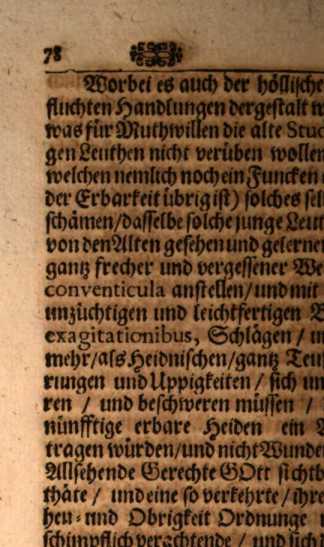 78
Worbei es auch der höllische
fluchten Handlungen dergestalt
was für Muthwillen die alte Stud
gen Leuthen nicht verüben wollen
welchen nemlich noch ein Funcken
der Erbarkeit übrig ist) solches sel
schämen/dasselbe solche junge Leut
von den Alten gesehen und gelernet
gantz frecher und vergessener We
conventicula anstellen/und mit
unzüchtigen und leichtfertigen
exagitationibus, Schlägen /
mehr/als Heidnischen/gantz Teuf
rungen und Uppigkeiten / sich un
ren / und beschweren müssen /
nünfftige erbare Heiden ein
tragen würden/und nicht Wunde
Allsehende Gerechte GOtt sichtb
thäte / und eine so verkehrte/ihre
hen- und Obrigkeit Ordnunge
schimpflich verachtende / und sich